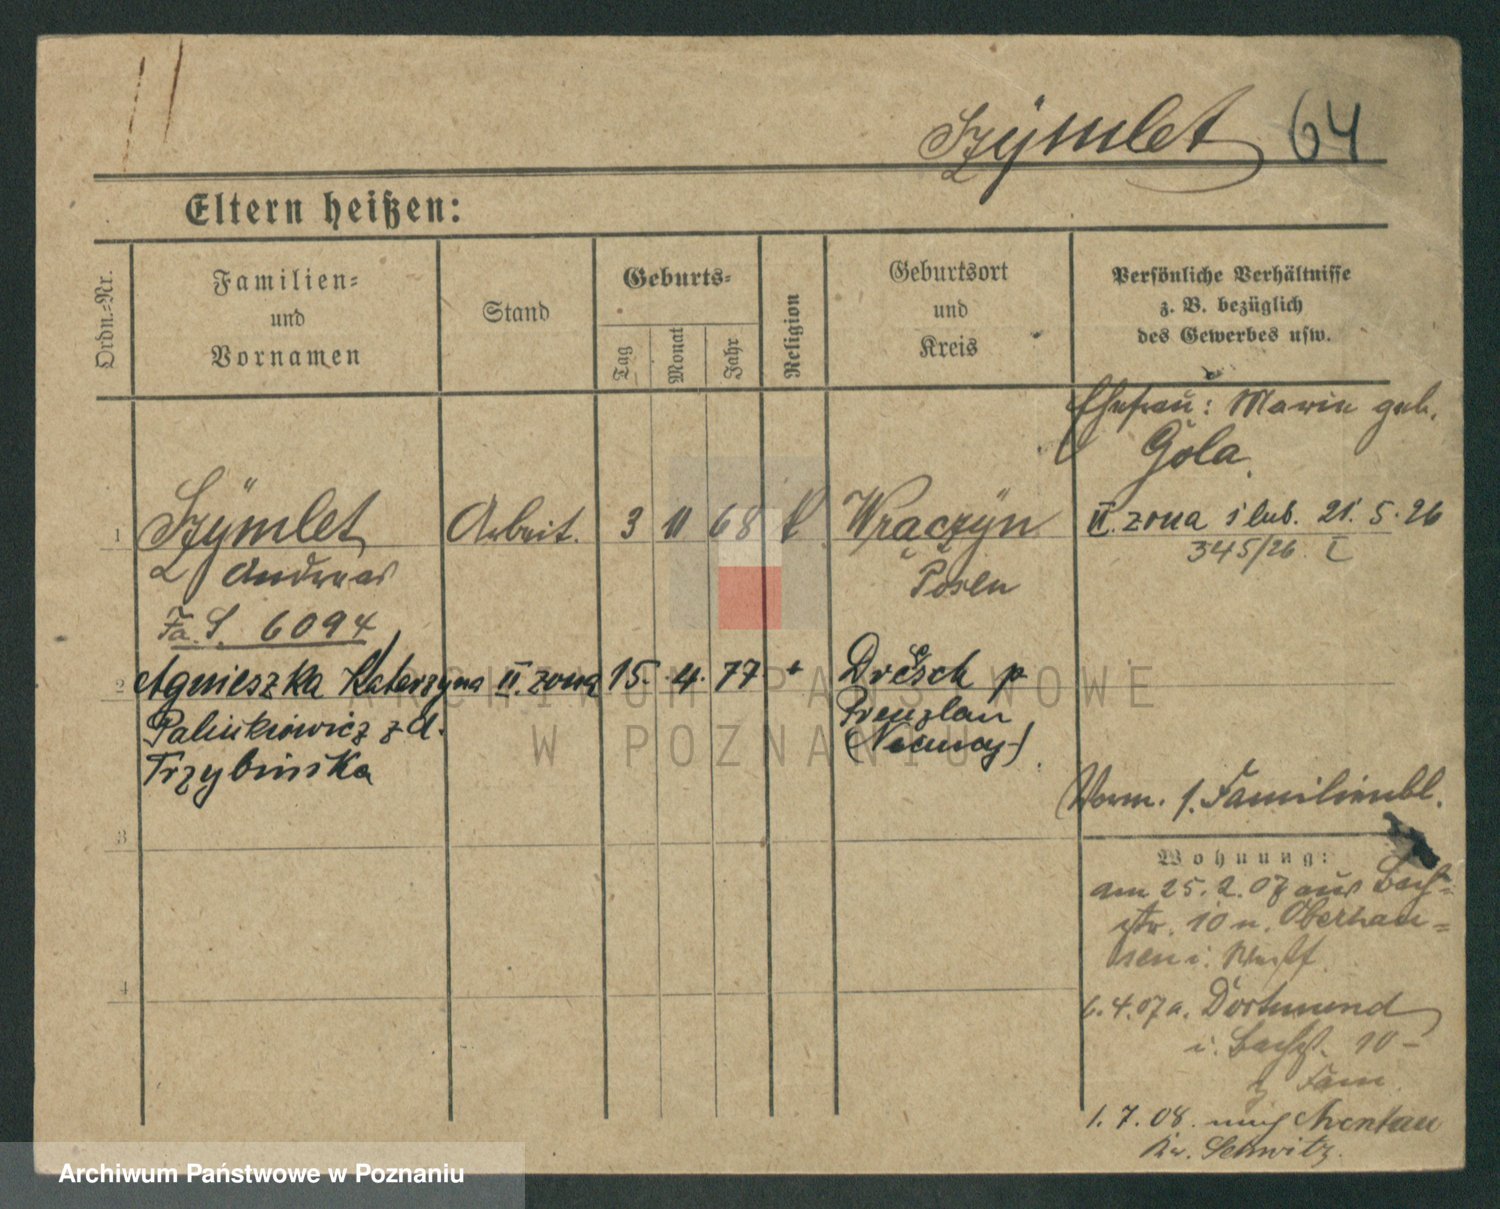 Szÿmlet 64
Eltern heißen:
Ordn.=Nr.
Familien=
und
Vornamen
Stand
Geburts=
Tag
Monat
Jahr
Religion
Geburtsort
und
Kreis
Persönliche Verhältnisse
z. B. bezüglich
des Gewerbes usw.
Ehefrau: Marie geb.
Gola.
1 Szÿmlet Arbeit. 3 11 68 k Wrączÿn II. zona ślub. 21. 5. 26
345/26 I
Andreas Posen
Fa. S. 6094
2 Agnieszka Katarzyna II. zona 15. 4. 77 + p
Paluszkiewicz z d. Prenzlau
Trzybińska (Niemcy)
Verm. s. Familienbl.
3
Wohnung:
am 25. 2. 07 aus Bach=
str. 10 n. Oberhau=
sen i. Westf.
4
6. 4. 07 a. Dortmund
i. Bachst. 10 -
z Fam.
1. 7. 08. nach
Kr.
ARCHIWUM PAŃSTWOWE
W POZNANIU
Archiwum Państwowe w Poznaniu